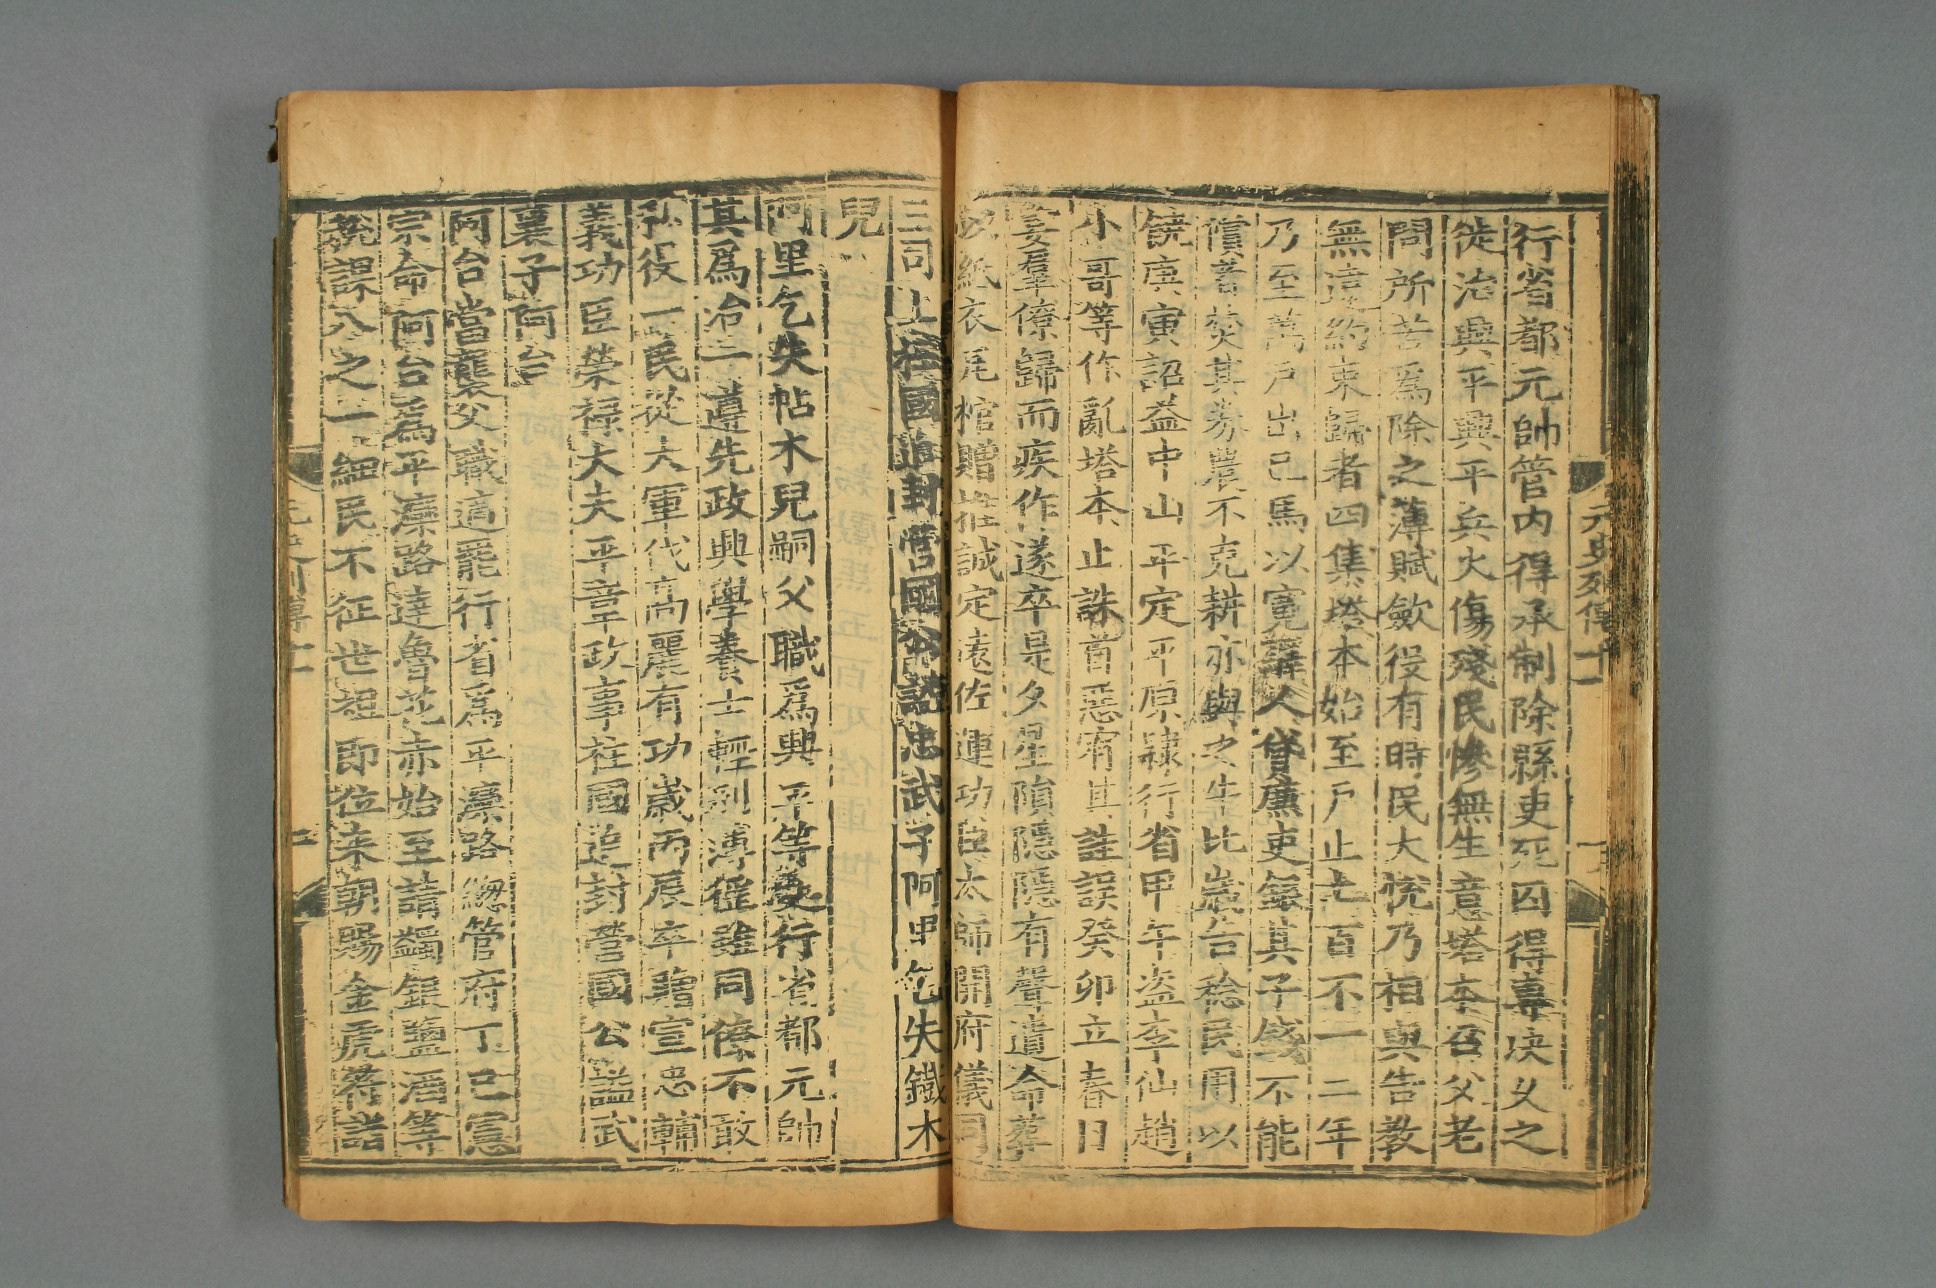 元史列傳十一
行省都元帥管內得承制除縣吏死囚得專決又之
徙治興平興平兵火傷殘民慘無生意塔本召父老
問所苦爲除之薄賦歛役有時民大悅乃相與告教
無違約束歸者四集塔本始至戶止七百不一二年
乃至萬戶出己馬以寬驛人貸廉吏銀其子錢不能
償者焚其券農不克耕亦與之牛比歲告稔民用以
饒庚寅詔益中山平定平原隸行省甲午盜李仙趙
小哥等作亂塔本止誅首惡宥其詿誤癸卯立春日
宴羣僚歸而疾作遂卒是夕星隕隱隱有聲遺命葬
以紙衣瓦棺贈推誠定遠佐運功臣太師開府儀同
三司上柱國追封營國公謚忠武子阿里乞失鐵木
兒
阿里乞失帖木兒嗣父職爲興平等處行省都元帥
其爲治一遵先政興學養士輕刑薄徭雖同僚不敢
私役一民從大軍伐高麗有功歲丙辰卒贈宣忠輔
義功臣榮祿大夫平章政事柱國追封營國公謚武
襄子阿台
阿台當襲父職適罷行省爲平灤路緫管府丁巳憲
宗命阿台爲平灤路達魯花赤始至請蠲銀鹽酒等
稅課八之一細民不征世祖即位來朝賜金虎符諸
元史列傳十一